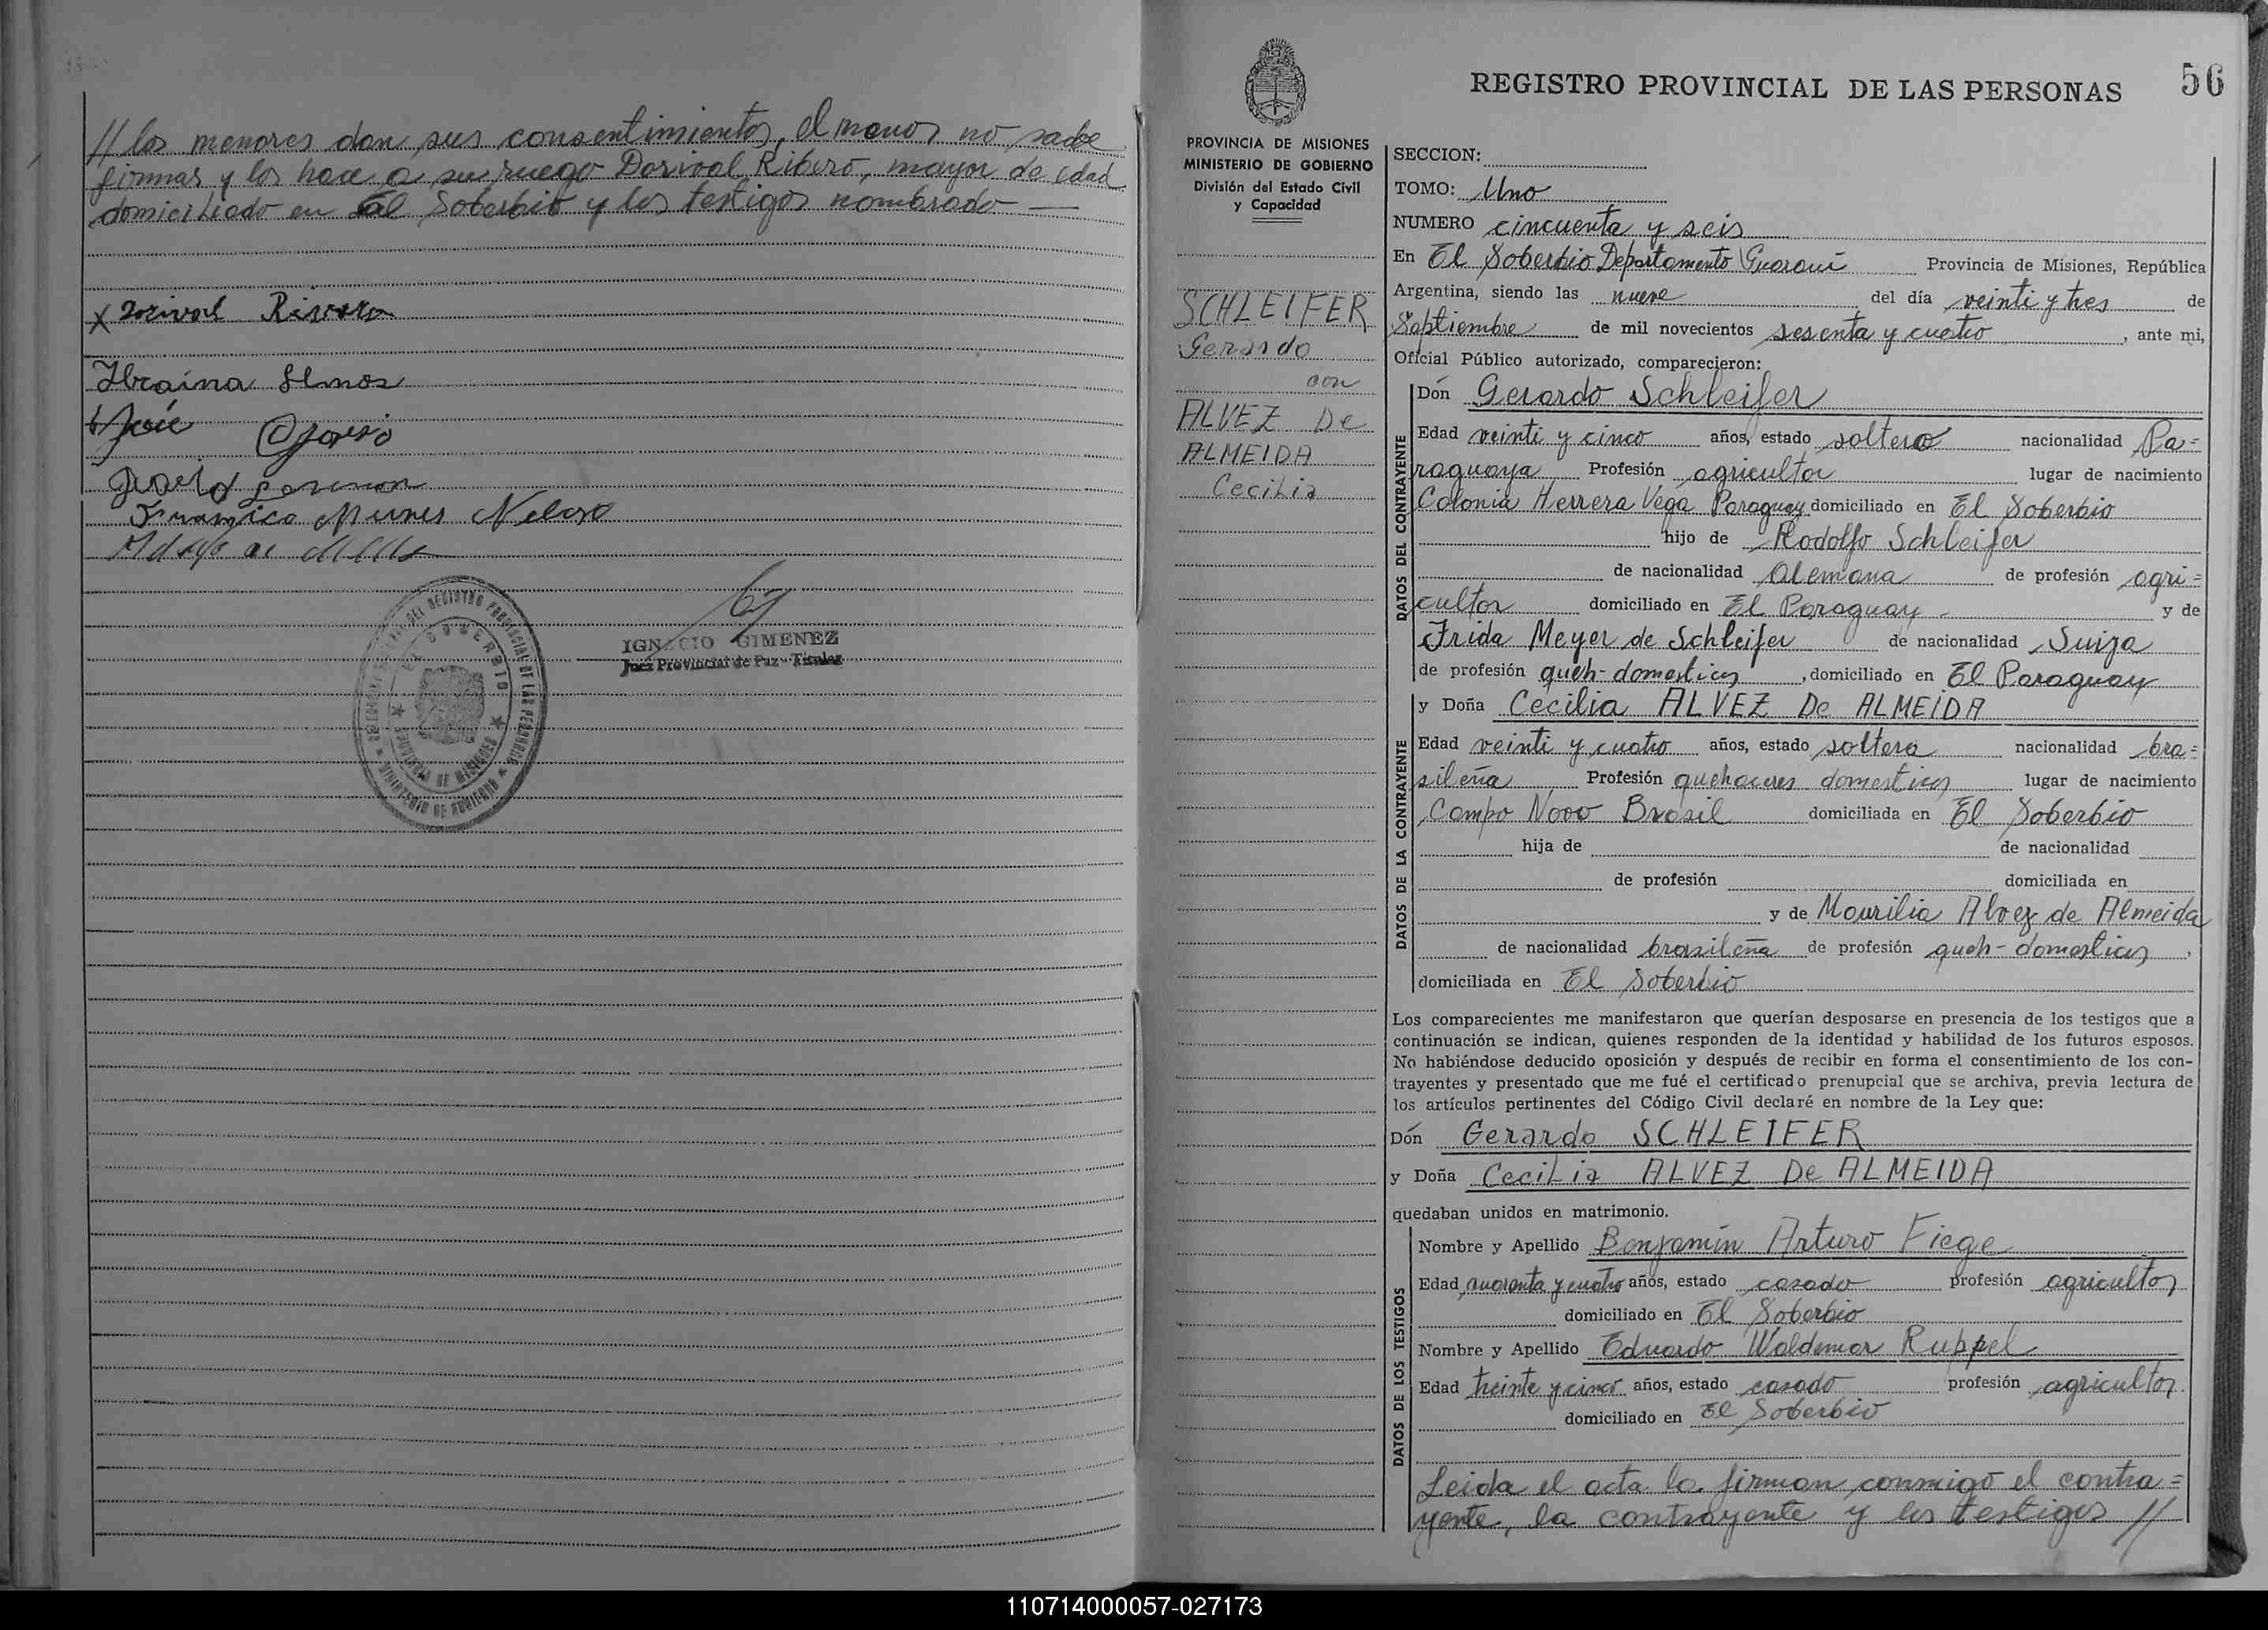 // los menores dan sus consentimientos, el menor no sabe
firmar y los hace a su ruego Dorival Ribero, mayor de edad
domiciliado en El Soberbio y los testigos nombrado —
X Dorival Rivero
Ibraina
José
Nunes Veloso
IGNACIO GIMENEZ
Juez Provincial de Paz - Titular
EL SOBERBIO
PROVINCIA DE MISIONES
MINISTERIO DE GOBIERNO
REGISTRO PROVINCIAL DE LAS PERSONAS
56
PROVINCIA DE MISIONES
MINISTERIO DE GOBIERNO
División del Estado Civil
y Capacidad
SCHLEIFER
Gerardo
con
ALVEZ De
ALMEIDA
Cecilia
SECCION:
TOMO: Uno
NUMERO cincuenta y seis
En El Soberbio Departamento Guaraní Provincia de Misiones, República
Argentina, siendo las nueve del día veinti y tres de
Septiembre de mil novecientos sesenta y cuatro, ante mi,
Oficial Público autorizado, comparecieron:
DATOS DEL CONTRAYENTE
Dón Gerardo Schleifer
Edad veinti y cinco años, estado soltero nacionalidad Pa=
raguaya Profesión agricultor lugar de nacimiento
Colonia Herrera Vega Paraguay domiciliado en El Soberbio
hijo de Rodolfo Schleifer
de nacionalidad Alemana de profesión agri=
cultor domiciliado en El Paraguay - y de
Frida Meyer de Schleifer de nacionalidad Suiza
de profesión queh-domesticos, domiciliado en El Paraguay
DATOS DE LA CONTRAYENTE
y Doña Cecilia ALVEZ De ALMEIDA
Edad veinti y cuatro años, estado soltera nacionalidad bra=
sileña Profesión quehaceres domesticos lugar de nacimiento
Campo Novo Brasil domiciliada en El Soberbio
hija de de nacionalidad
de profesión domiciliada en
y de Maurilia Alvez de Almeida
de nacionalidad brasileña de profesión queh-domesticos,
domiciliada en El Soberbio
Los comparecientes me manifestaron que querían desposarse en presencia de los testigos que a
continuación se indican, quienes responden de la identidad y habilidad de los futuros esposos.
No habiéndose deducido oposición y después de recibir en forma el consentimiento de los con-
trayentes y presentado que me fué el certificado prenupcial que se archiva, previa lectura de
los artículos pertinentes del Código Civil declaré en nombre de la Ley que:
Dón Gerardo SCHLEIFER
y Doña Cecilia ALVEZ De ALMEIDA
quedaban unidos en matrimonio.
DATOS DE LOS TESTIGOS
Nombre y Apellido Benjamin Arturo Fiege
Edad cuarenta y cuatro años, estado casado profesión agricultor
domiciliado en El Soberbio
Nombre y Apellido Eduardo Waldemar Ruppel
Edad treinte y cinco años, estado casado profesión agricultor
domiciliado en El Soberbio
Leida el acta la firman conmigo el contra=
yente, la contrayente y los testigos //
110714000057-027173